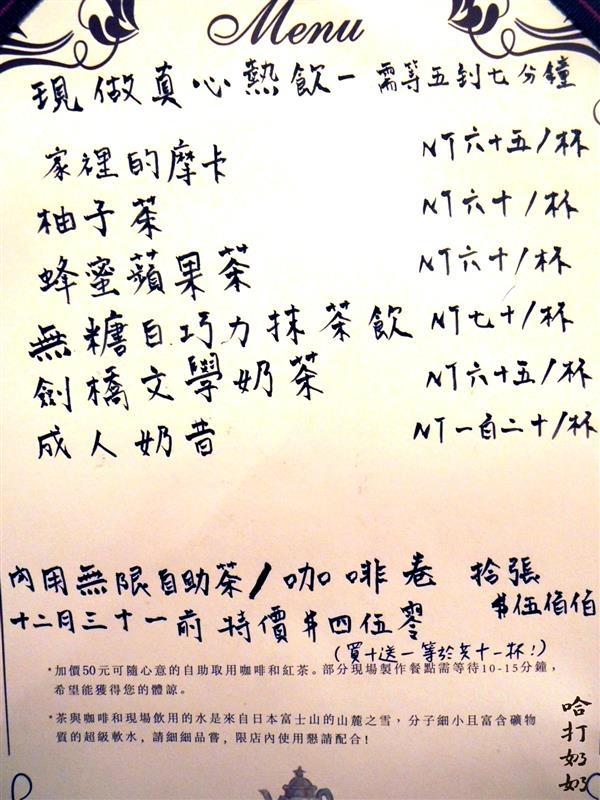 Menu
現做真心熱飲－需等五到七分鐘
家裡的摩卡 NT六十五/杯
柚子茶 NT六十/杯
蜂蜜蘋果茶 NT六十/杯
無糖白巧力抹茶飲 NT七十/杯
劍橋文學奶茶 NT六十五/杯
成人奶昔 NT一百二十/杯
內用無限自助茶/咖啡卷 拾張
$伍佰伯
十二月三十一前 特價$四伍零
(買十送一等於共十一杯!)
*加價50元可隨心意的自助取用咖啡和紅茶。部分現場製作餐點需等待10-15分鐘，
希望能獲得您的體諒。
*茶與咖啡和現場飲用的水是來自日本富士山的山麓之雪，分子細小且富含礦物
質的超級軟水，請細細品嘗，限店內使用懇請配合！
哈打奶奶